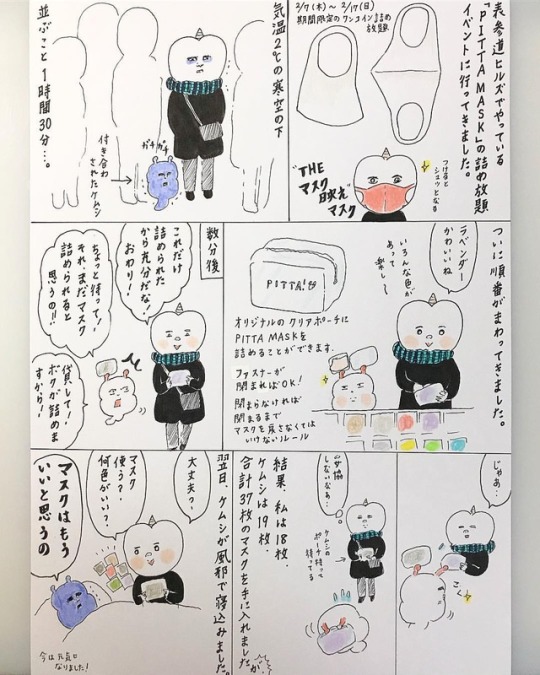 表参道ヒルズでやっている
「PITTA MASK」の詰め放題
イベントに行ってきました。
2/7(木)～2/17(日)
期間限定のワンコイン詰め
放題
つけると
シュッとなる
"THE
マスク
映え"
マスク
気温2℃の寒空の下
ガチガチ
付き合わ
されたケムシ
並ぶこと1時間30分…。
ついに順番がまわってきました。
ラベンダー
かわいいね
いろんな色が
あって
楽しー
PITTA!
オリジナルのクリアポーチに
PITTA MASKを
詰めることができます。
ファスナーが
閉まればOK!
閉まらなければ
閉まるまで
マスクを戻さなくては
いけないルール
数分後
これだけ
詰められた
から充分だな!
おわり!
ちょっと待って!
それまだマスク
詰められると
思うの!!
貸して!
ボクが詰めま
すから!
じゃあ…
こく
妥協
しないなぁ…
ケムシの
ポーチ持って
待ってる
結果、私は18枚、
ケムシは19枚、
合計37枚のマスクを手に入れました。
が
翌日、ケムシが風邪で寝込みました。
大丈夫?
マスク
使う?
何色がいい?
マスクはもう
いいと思うの
今は元気に
なりました!